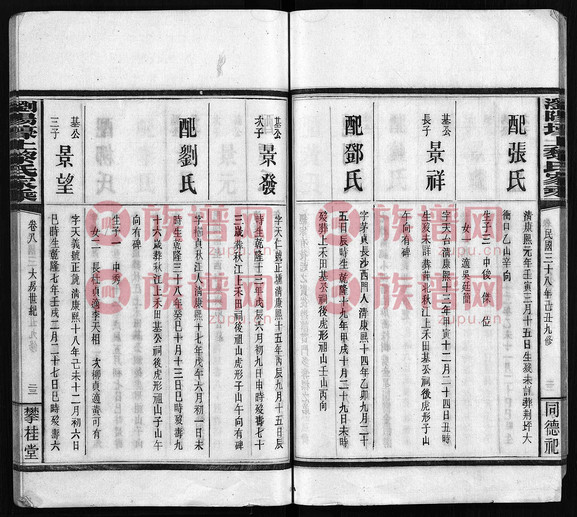 配張氏
清康熙元年壬寅三月十五日生歿未詳葬荆坪大
衝口乙山辛向
生子三 申後 條 位
女一 適吳廷簡
墓公
長子
景祥
字天吉清康熙十三年甲寅十二月二十四日丑時
向有碑
配鄧氏
字茅貞長沙西門人清康熙十四年乙卯九月二十
五日辰時生乾隆十九年甲戌十月二十九日未時
歿葬上禾田墓公祠後虎形祖山壬山丙向
墓公
次子
景發
字天仁號正 清康熙十五年丙辰九月十五日辰
時生乾隆十三年戊辰六月初九日申時歿壽七十
三歲葬秋江上禾田墓公祠後祖山虎形子山午向
有碑
配劉氏
清康熙十七年戊午六月初一日未
時生乾隆三十八年癸巳十月十三日巳時歿壽九
十六歲葬秋江上禾田墓公祠後虎形祖山子山午
向有碑
生子一 申秀
女二 長桂貞適李天相 次
墓公
三子
景望
字天義號正 清康熙十八年己未十二月初六日
巳時生乾隆七年壬戌二月二十七日巳時歿壽六
民國三十八年己丑九修
同德祀
卷八
大房世紀
二三
攀桂堂
族谱网
zupu.cn